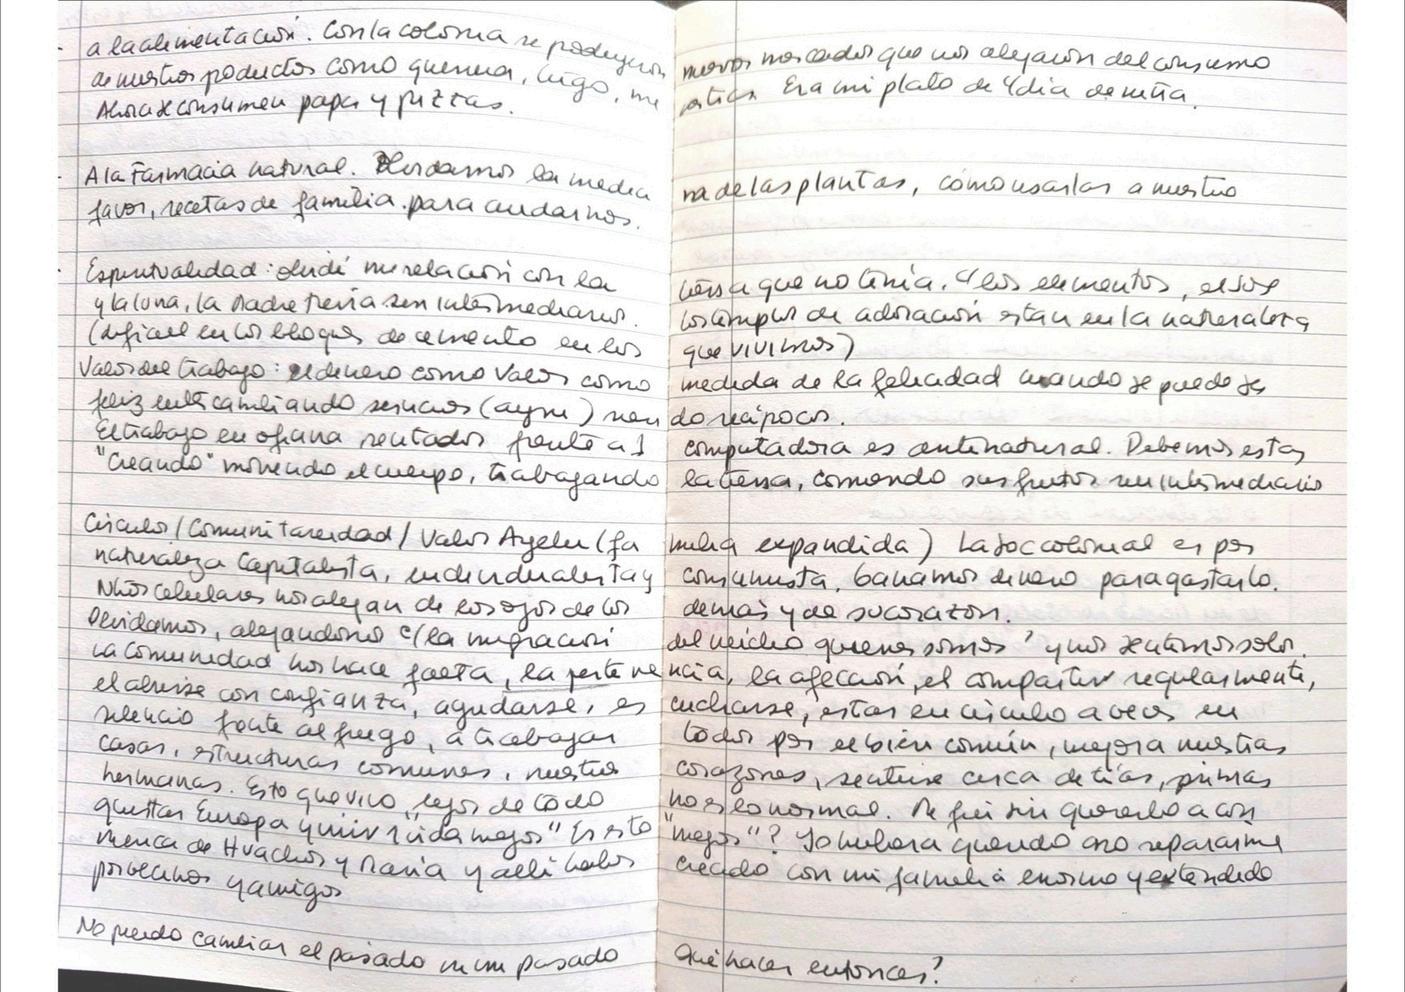 - a la alimentación. Con la colonia se produjeron nuevos mercados que nos alejaron del consumo
de nuestros productos como quenua, trigo, me Era mi plato de 4 día de niña.
Ahora se consumen papa y pizzas.
- A la Farmacia natural. Olvidamos la medici na de las plantas, como usarlas a nuestro
favor, recetas de familia. para cuidarnos.
- Espiritualidad: olvidé mi relación con la tierra que no tenía. Y los elementos, el sol
y la luna, la Madre tierra sin intermediarios. los templos de adoración están en la naturaleza
(dificil en los bloques de cemento en los que vivimos)
Valor del trabajo: el dinero como valor como medida de la felicidad cuando se puede ser
feliz intercambiando servicios (ayni) sien do recíprocos.
El trabajo en oficina sentados frente a 1 computadora es antinatural. Debemos estar
"Creando" moviendo el cuerpo, trabajando la tierra, comiendo sus frutos sin intermediario
Círculo / Comunitariedad / Valor Ayllu (fa milia expandida) La soc colonial es por
naturaleza Capitalista, individualista y consumista. Ganamos dinero para gastarlo.
Nños celulares nos alejan de los ojos de los demás y de su corazón.
Olvidamos, alejandonos c/ la migración del nucleo quienes somos y nos sentimos solos.
La comunidad nos hace falta, la pertene ncia, la afección, el compartir regularmente,
el abrirse con confianza, ayudarse, es cucharse, estar en círculo a veces en
silencio frente al fuego, a trabajar todos por el bien común, mejora nuestras
casas, estructuras comunes, nuestros corazones, sentirse cerca de tías, primas
hermanas. Esto que vivo, lejos de todo no es lo normal. Me fui sin quererlo a con
quistar Europa y vivir "vida mejor" Es esto "mejor"? Yo hubiera querido no separarme
nunca de Huachos y María y allí haber creado con mi familia enorme y extendido
por vecinos y amigos
No puedo cambiar el pasado un pasado Qué hacer entonces?